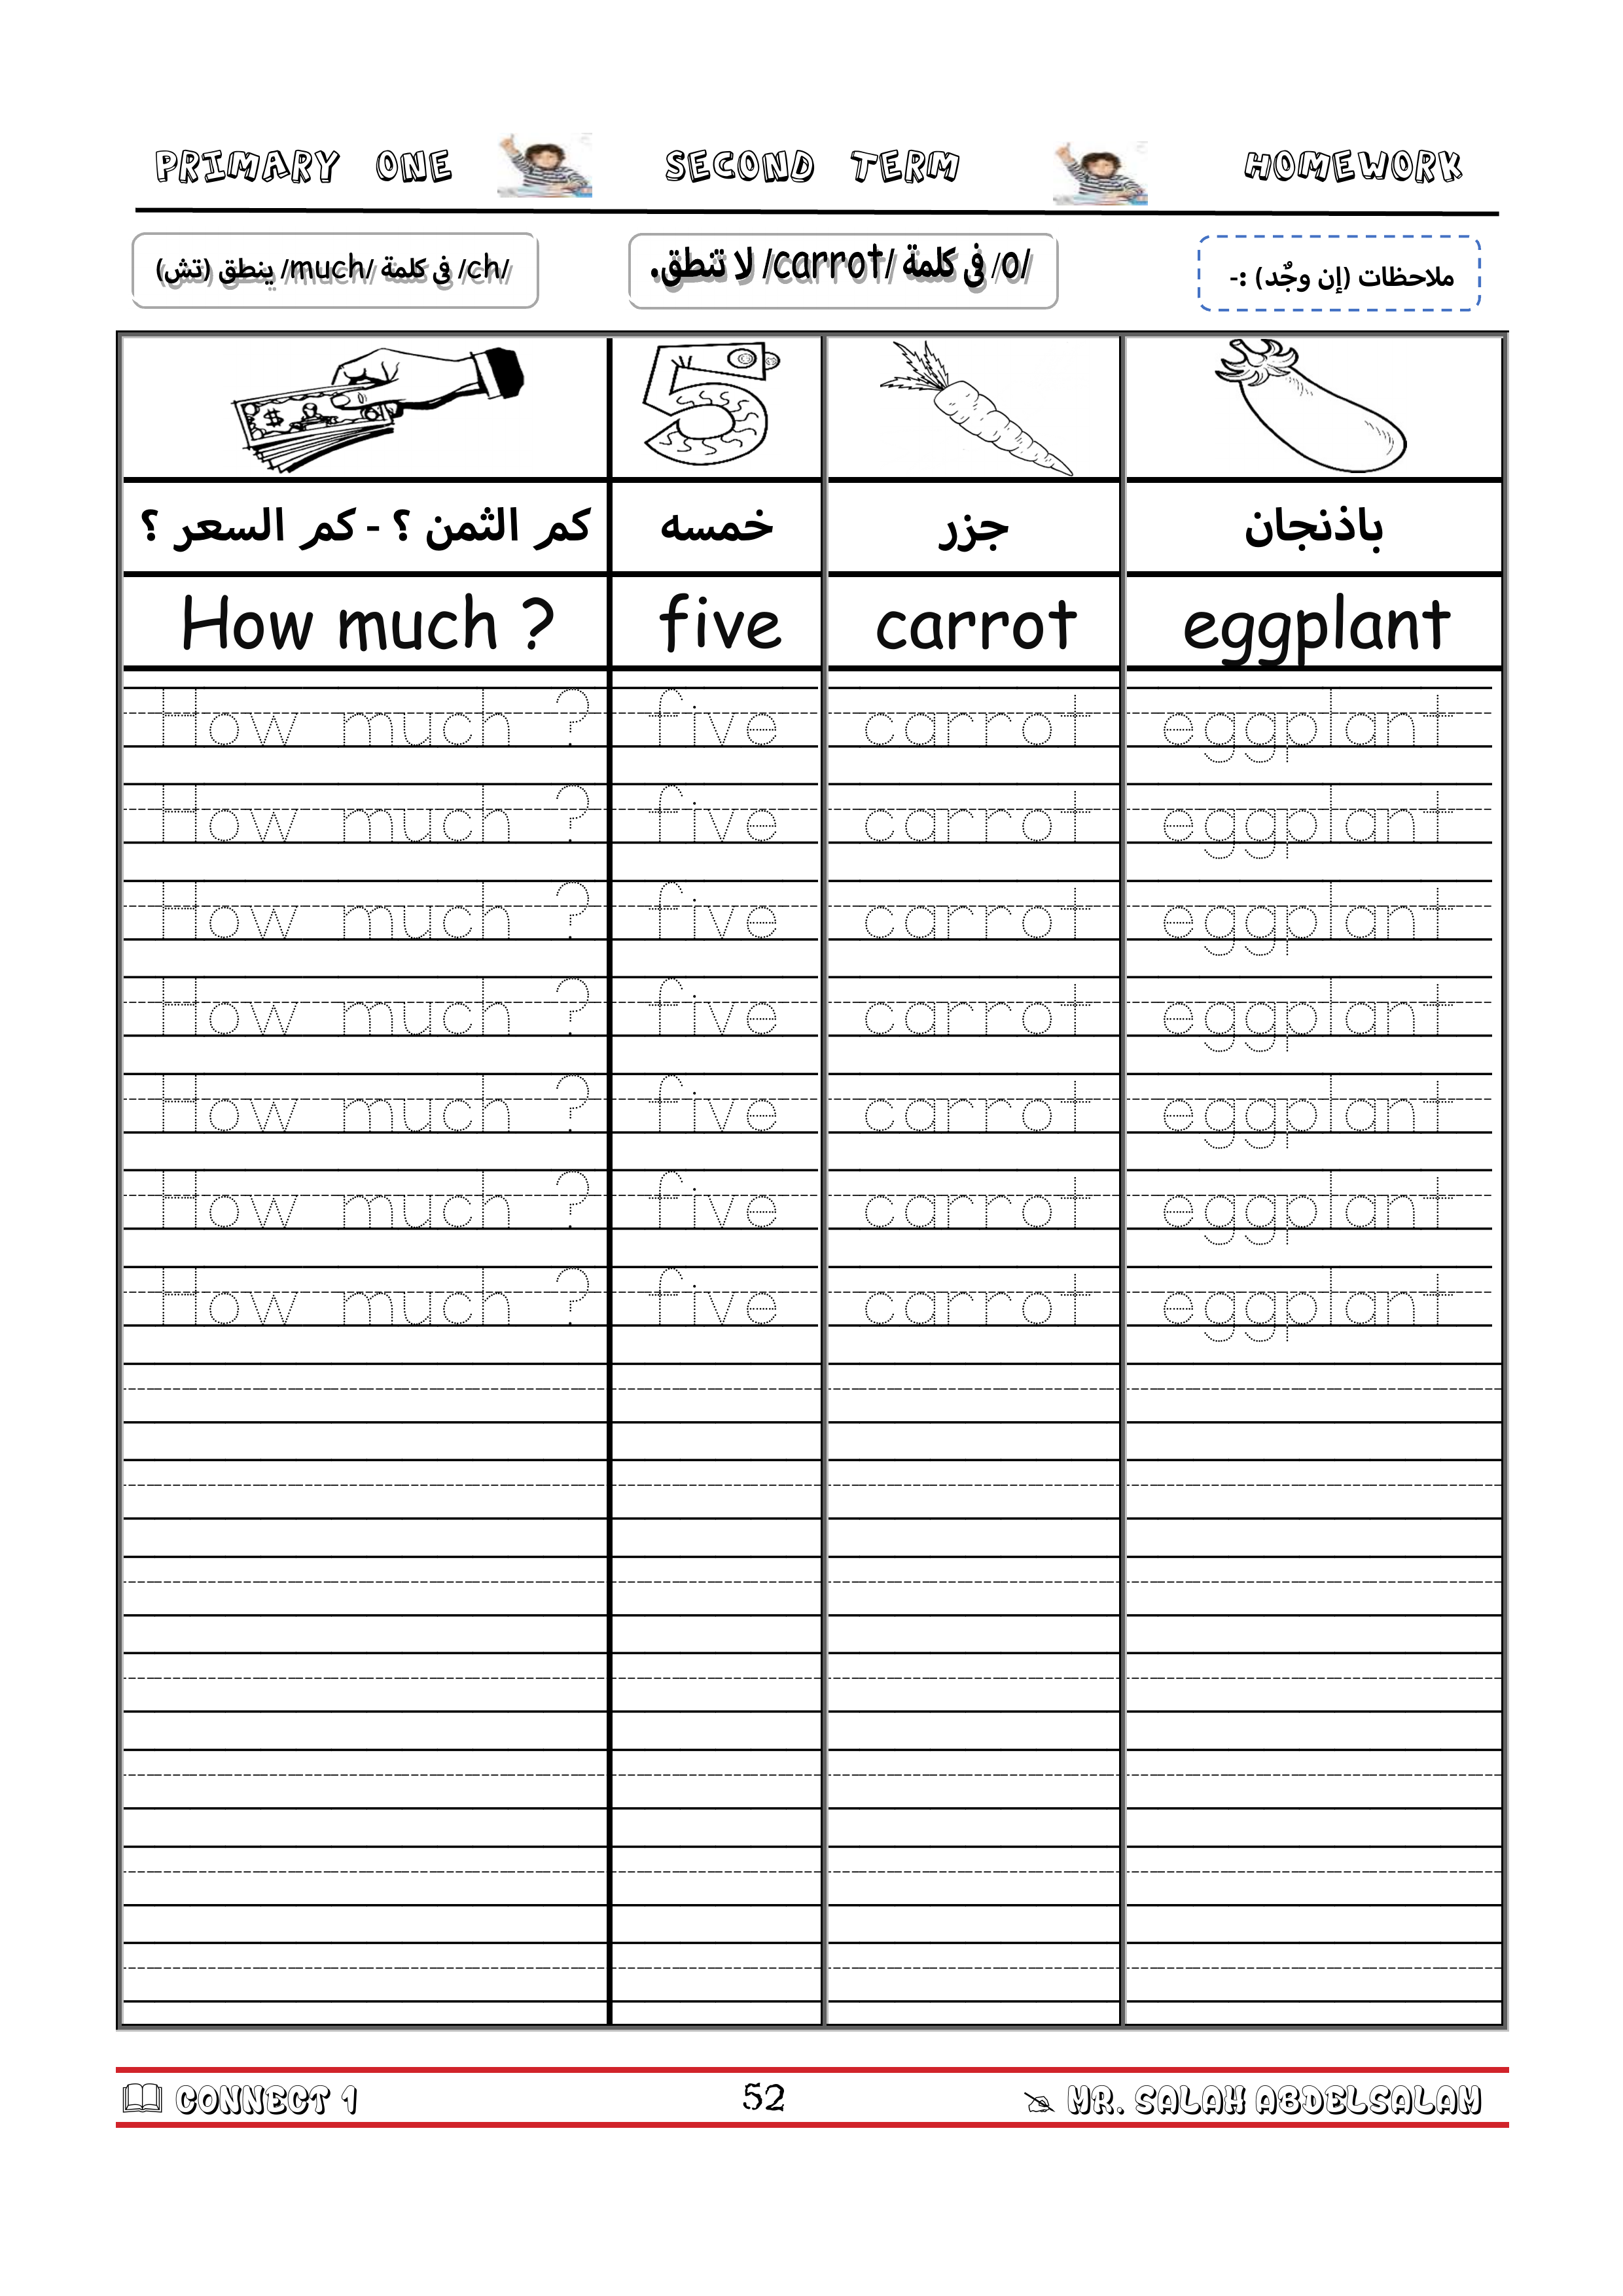 PRIMARY ONE SECOND TERM HOMEWORK
ملاحظات (إن وجٌد) :-
/o/ فى كلمة /carrot/ لا تنطق.
/ch/ فى كلمة /much/ ينطق (تش)
$
كم الثمن ؟ - كم السعر ؟ خمسه جزر باذنجان
How much ? five carrot eggplant
How much ? five carrot eggplant
How much ? five carrot eggplant
How much ? five carrot eggplant
How much ? five carrot eggplant
How much ? five carrot eggplant
How much ? five carrot eggplant
How much ? five carrot eggplant
CONNECT 1 52 MR. SALAH ABDELSALAM